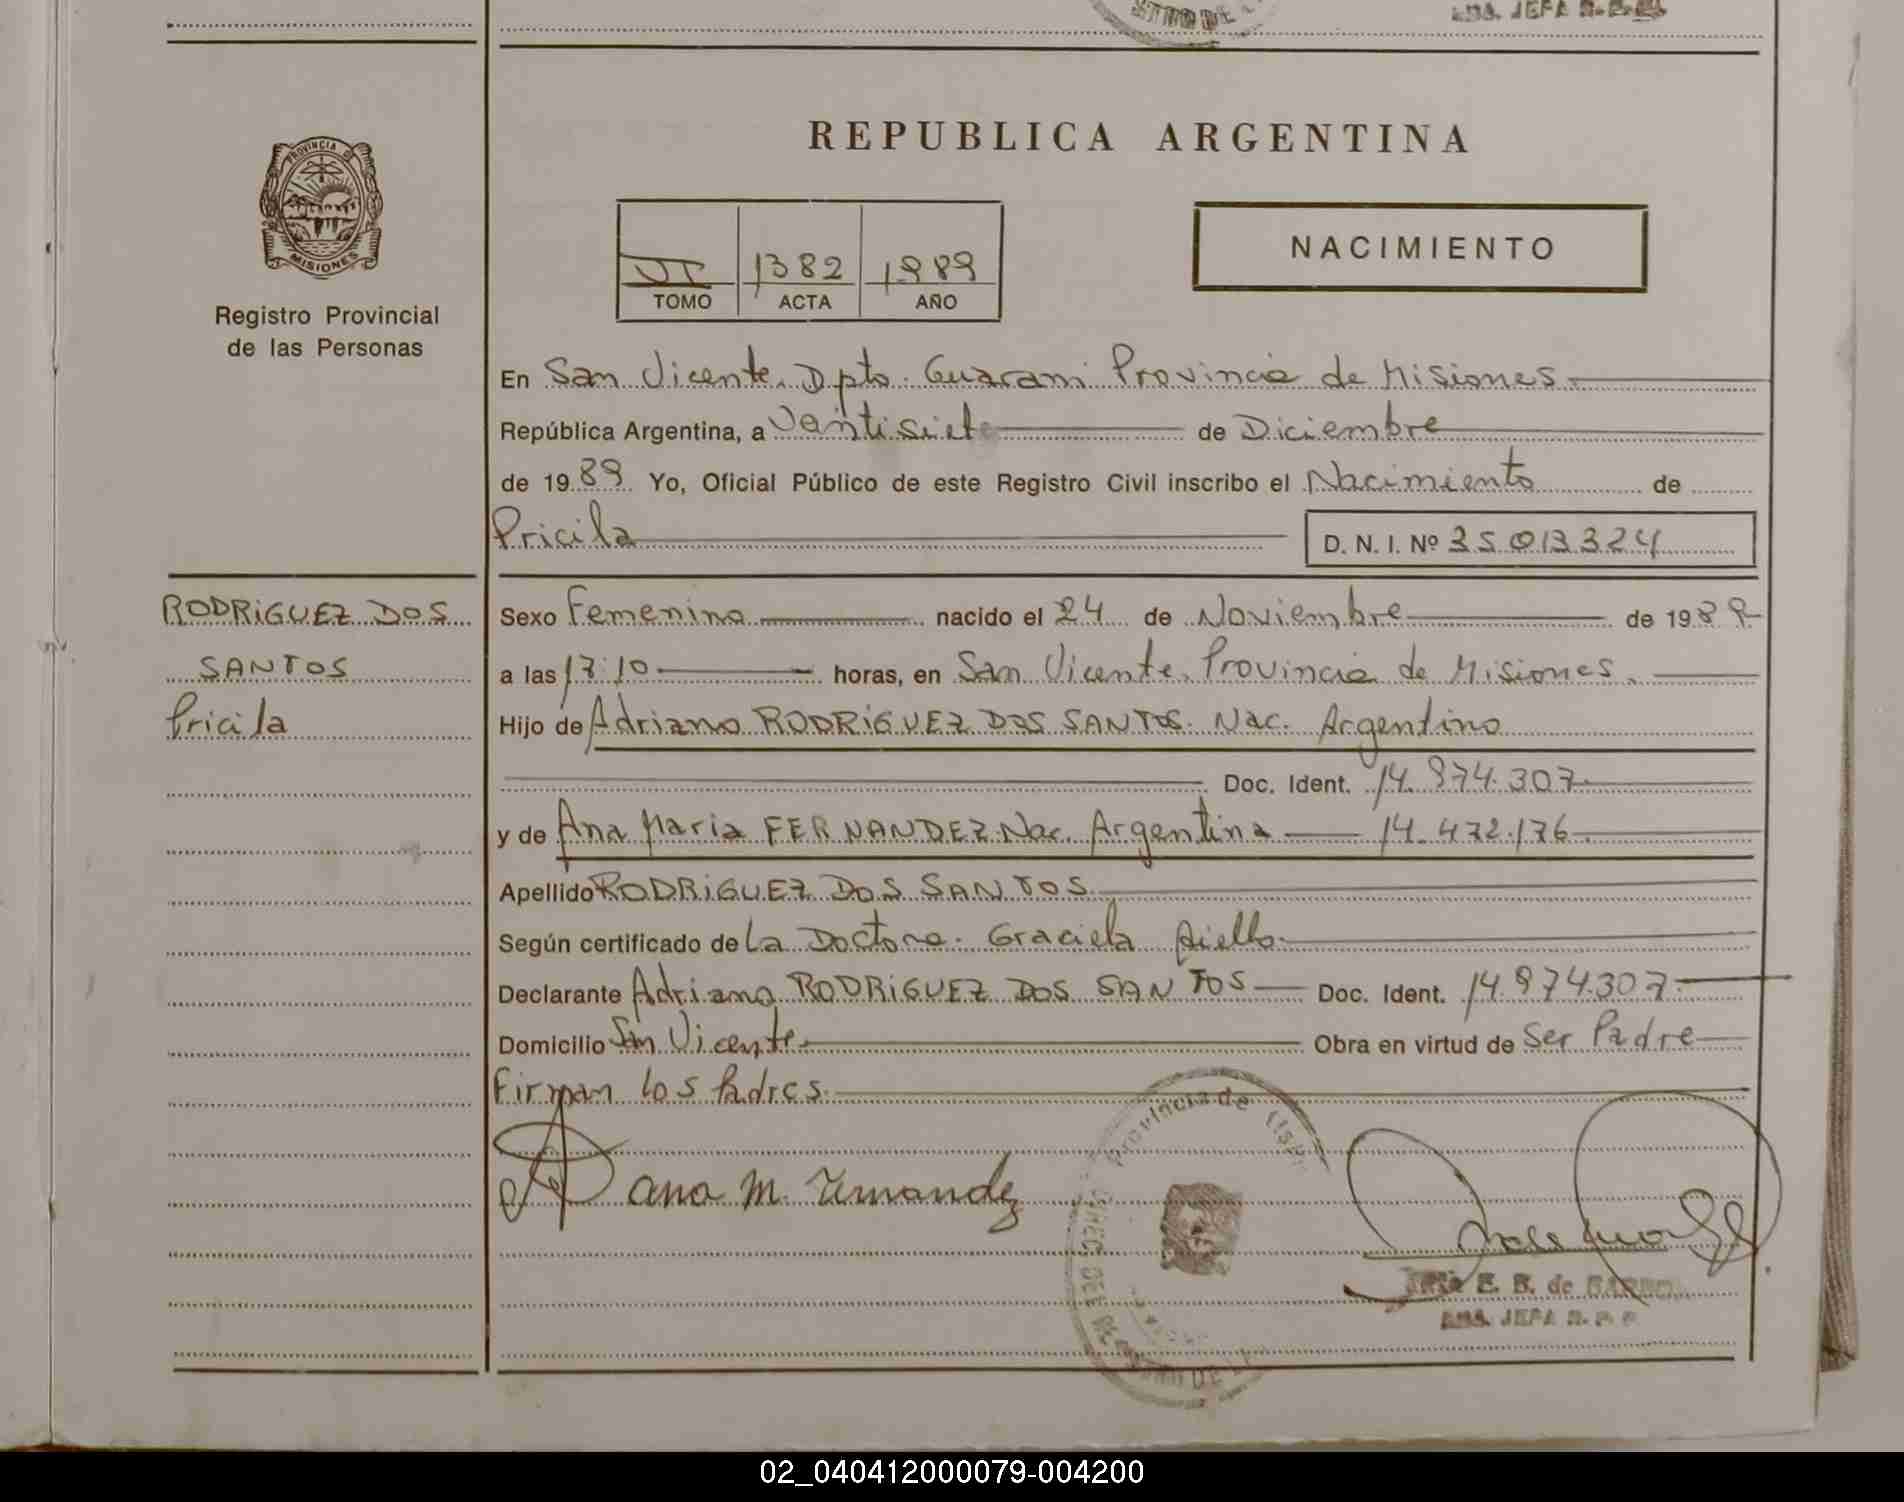 ADS. JEFA R. P. P.
PROVINCIA DE
MISIONES
Registro Provincial
de las Personas
REPUBLICA ARGENTINA
NACIMIENTO
VI 1382 1989
TOMO ACTA AÑO
En San Vicente. Dpto. Guarani Provincia de Misiones.
República Argentina, a Veintisiete de Diciembre
de 19 89 Yo, Oficial Público de este Registro Civil inscribo el Nacimiento de
Pricila D. N. I. Nº 35013324
RODRIGUEZ DOS
SANTOS
Pricila
Sexo Femenino nacido el 24 de Noviembre de 1989
a las 17:10 horas, en San Vicente. Provincia de Misiones.
Hijo de Adriano RODRIGUEZ DOS SANTOS. Nac. Argentino
Doc. Ident. 14.974.307
y de Ana Maria FERNANDEZ. Nac. Argentina 14.472.176
Apellido RODRIGUEZ DOS SANTOS.
Según certificado de La Doctora. Graciela Aiello
Declarante Adriano RODRIGUEZ DOS SANTOS Doc. Ident. 14.974.307
Domicilio San Vicente Obra en virtud de Ser Padre
Firman los Padres.
Provincia de
ana M. Fernandez
E. B. de
JEFA R. P. P.
02_040412000079-004200